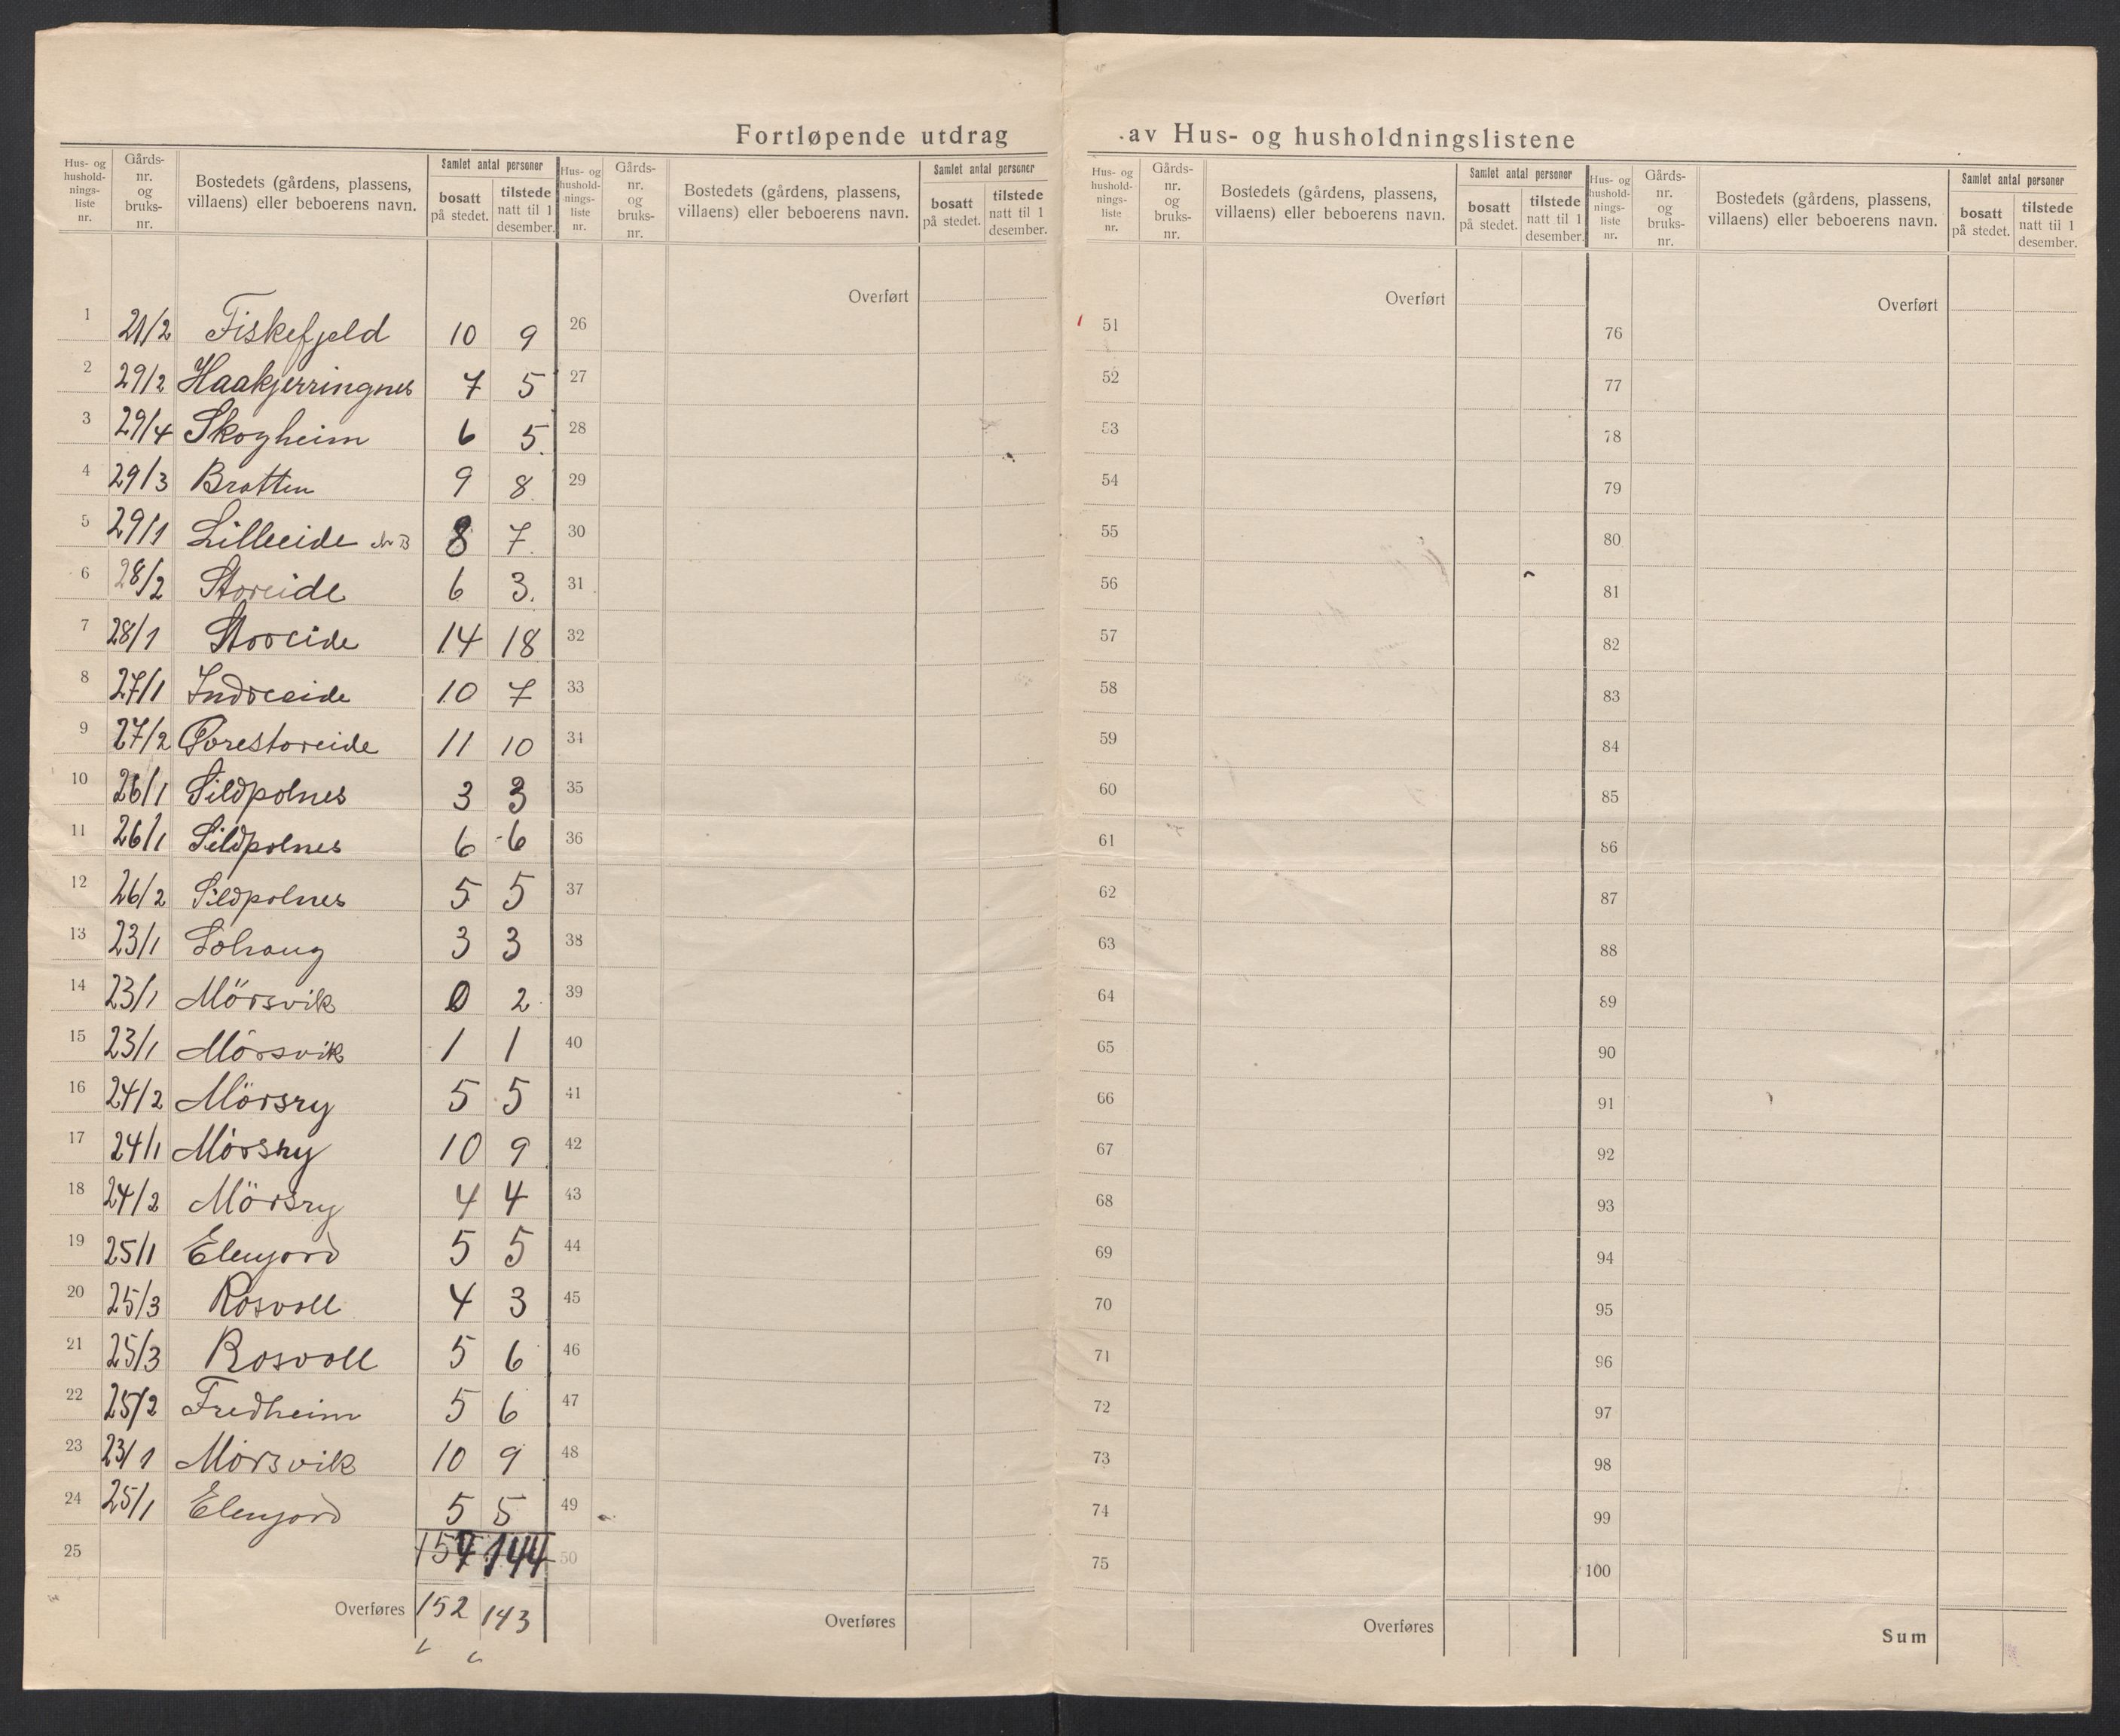 Fortløpende utdrag av Hus- og husholdningslistene
Hus- og husholdningsliste nr. | Gårdsnr. og bruksnr. | Bostedets (gårdens, plassens, villaens) eller beboerens navn. | Samlet antal personer | bosatt på stedet. | tilstede natt til 1 desember.
1 21/2 Fiskefjeld 10 9
2 29/2 Haakjerringnes 7 5
3 29/4 Skogheim 6 5.
4 29/3 Bratten 9 8.
5 29/1 Lilleeide 8 7.
6 28/2 Storeide 6 3.
7 28/1 Storeide 14 18
8 27/1 Indreeide 10 7
9 27/2 Øvrestoreide 11 10
10 26/1 Sildpolnes 3 3
11 26/1 Sildpolnes 6 6
12 26/2 Sildpolnes 5 5
13 23/1 Solhaug 3 3
14 23/1 Mörsvik 0 2
15 23/1 Mörsvik 1 1
16 24/2 Mörsry 5 5
17 24/1 Mörsry 10 9
18 24/2 Mörsry 4 4
19 25/1 Elenjord 5 5
20 25/3 Rosvoll 4 3
21 25/3 Rosvoll 5 6
22 25/2 Fredheim 5 6
23 23/1 Mörsvik 10 9
24 25/1 Elenjord 5 5
25 157 144
Overføres 152 143
Hus- og husholdningsliste nr. | Gårdsnr. og bruksnr. | Bostedets (gårdens, plassens, villaens) eller beboerens navn. | Samlet antal personer | bosatt på stedet. | tilstede natt til 1 desember.
Overført
26
27
28
29
30
31
32
33
34
35
36
37
38
39
40
41
42
43
44
45
46
47
48
49
50
Overføres
Hus- og husholdningsliste nr. | Gårdsnr. og bruksnr. | Bostedets (gårdens, plassens, villaens) eller beboerens navn. | Samlet antal personer | bosatt på stedet. | tilstede natt til 1 desember.
Overført
51
52
53
54
55
56
57
58
59
60
61
62
63
64
65
66
67
68
69
70
71
72
73
74
75
Overføres
Hus- og husholdningsliste nr. | Gårdsnr. og bruksnr. | Bostedets (gårdens, plassens, villaens) eller beboerens navn. | Samlet antal personer | bosatt på stedet. | tilstede natt til 1 desember.
Overført
76
77
78
79
80
81
82
83
84
85
86
87
88
89
90
91
92
93
94
95
96
97
98
99
100
Sum